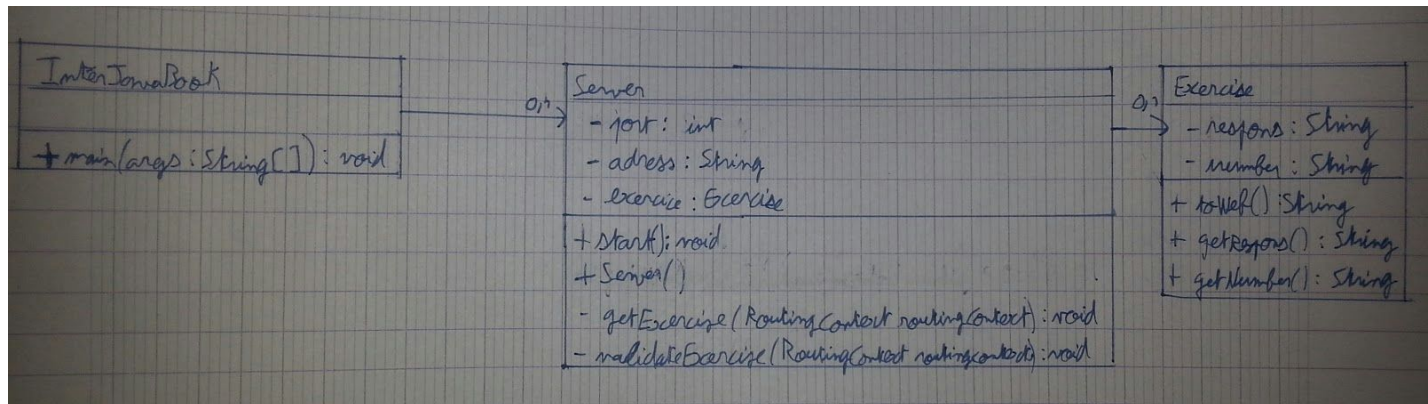 InterJavaBook
+ main(args : String[]) : void
0,n
Server
- port : int
- adress : String
- exercice : Exercise
+ start() : void
+ Server()
- getExercise(RoutingContext routingContext) : void
- validateExercise(RoutingContext routingContext) : void
0,n
Exercise
- respons : String
- number : String
+ toWeb() : String
+ getRespons() : String
+ getNumber() : String